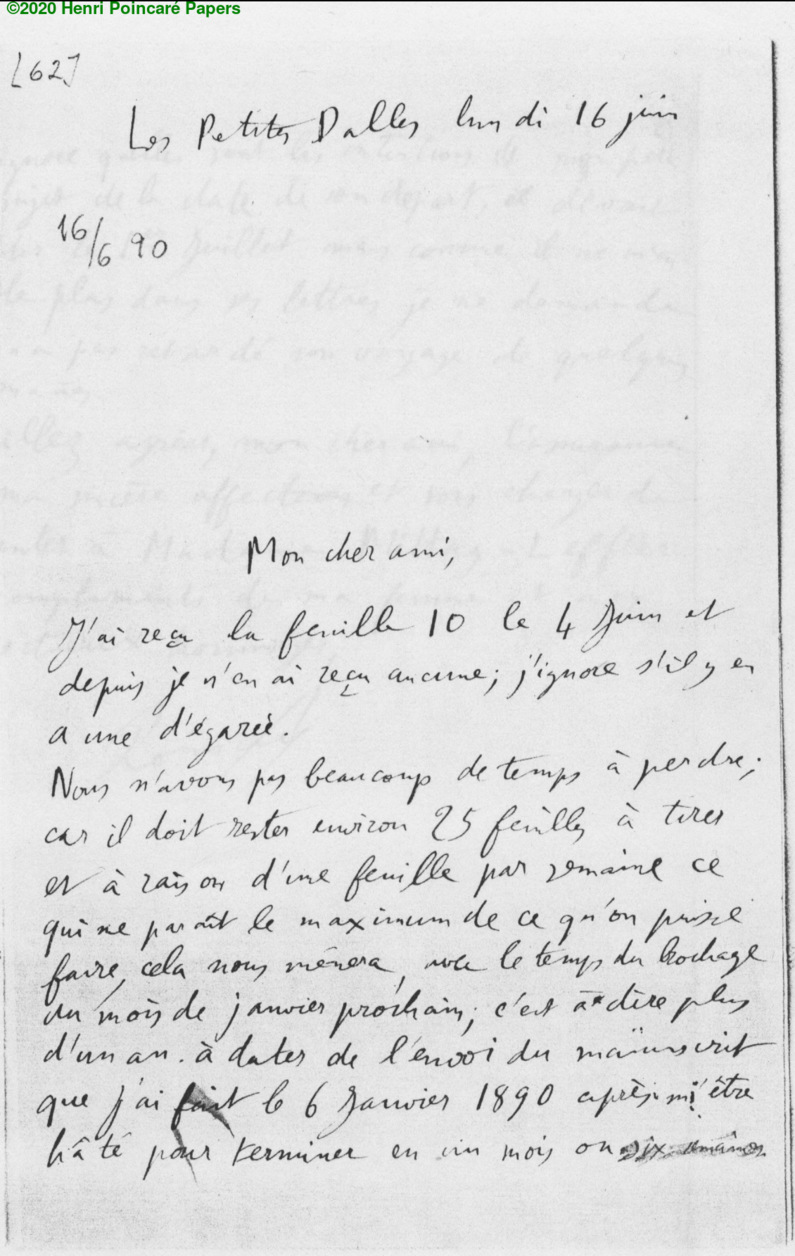 ©2020 Henri Poincaré Papers
[62]
Les Petites Dalles lundi 16 juin
16/6 90
Mon cher ami,
J'ai reçu la feuille 10 le 4 Juin et
depuis je n'en ai reçu aucune; j'ignore s'il y en
a une d'égarée.
Nous n'avons pas beaucoup de temps à perdre;
car il doit rester environ 25 feuilles à tirer
et à raison d'une feuille par semaine ce
qui me paraît le maximum de ce qu'on puisse
faire, cela nous mènera, avec le temps du brochage
au mois de janvier prochain; c'est à dire plus
d'un an. à dater de l'envoi du manuscrit
que j'ai fait le 6 Janvier 1890 après m'être
hâté pour terminer en un mois ou six semaines.